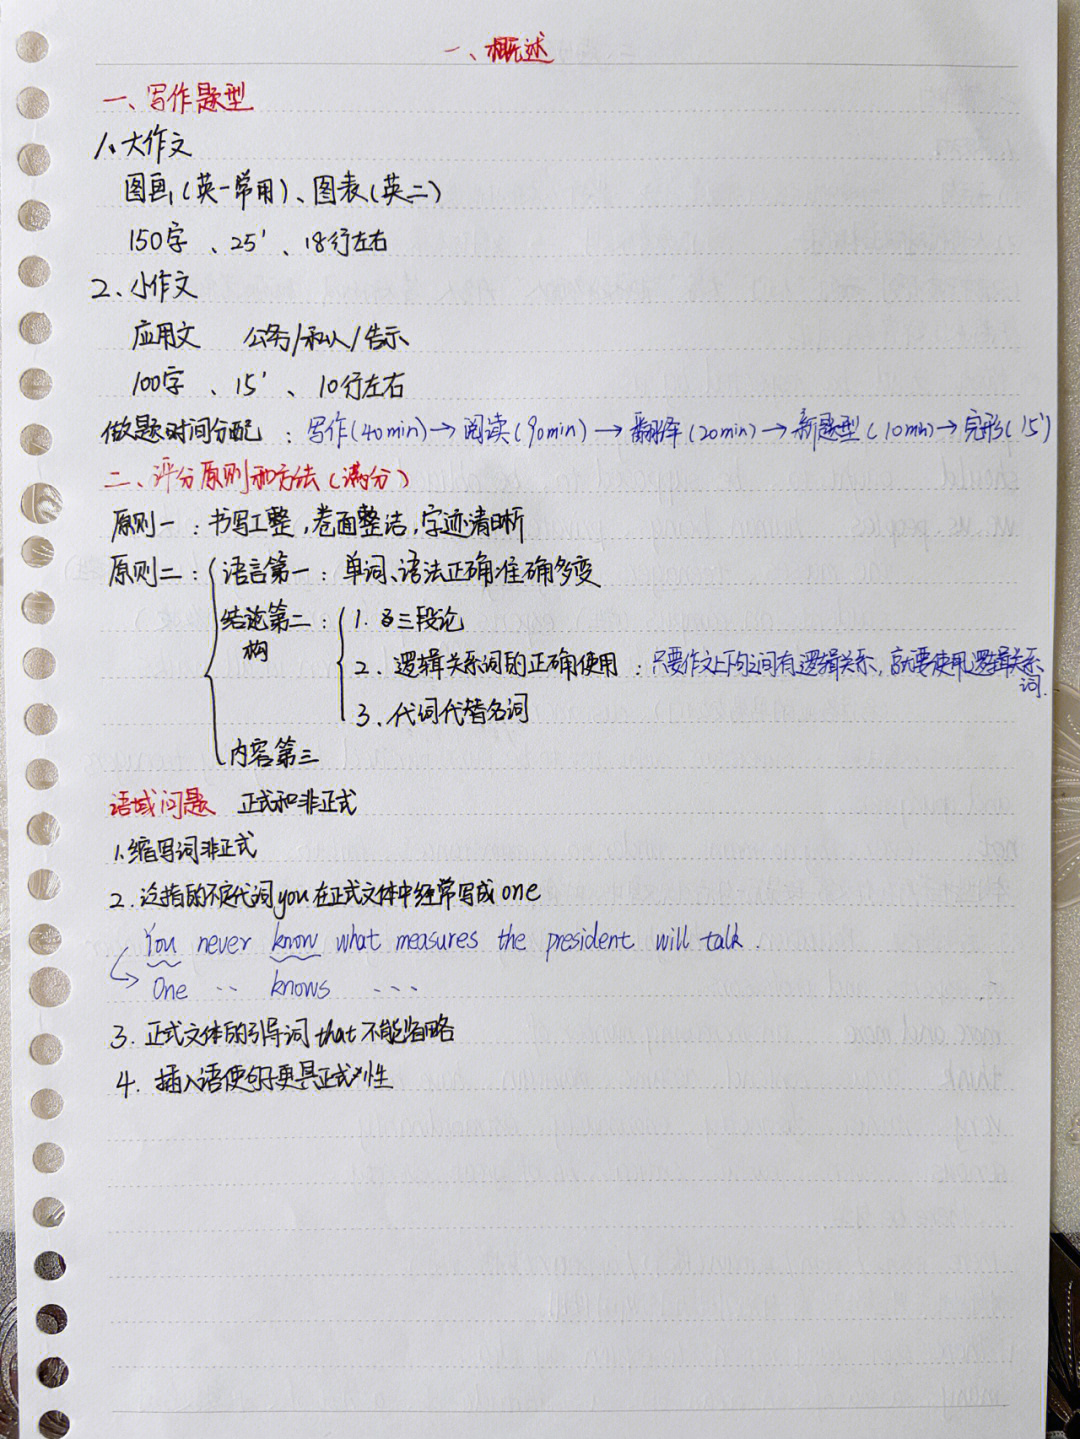 一、概述
一、写作题型
1、大作文
图画(英一常用)、图表(英二)
150字 、25' 、18行左右
2、小作文
应用文 公务/私人/告示
100字 、15' 、10行左右
做题时间分配 : 写作(40min)→阅读(90min)→翻译(20min)→新题型(10min)→完形(15')
二、评分原则和方法(满分)
原则一 : 书写工整,卷面整洁,字迹清晰
原则二 : 语言第一 : 单词、语法正确准确多变
结论第二 : 1. 三段论
构
2. 逻辑关系词的正确使用 : 只要作文上下句之间有逻辑关系,就要使用逻辑关系
词.
3. 代词代替名词
内容第三
语域问题 正式和非正式
1.缩写词非正式
2. 泛指的不定代词you在正式文体中经常写成one
You never know what measures the president will talk.
One ·· knows ···
3. 正式文体的引导词that不能省略
4. 插入语使句子更具正式性